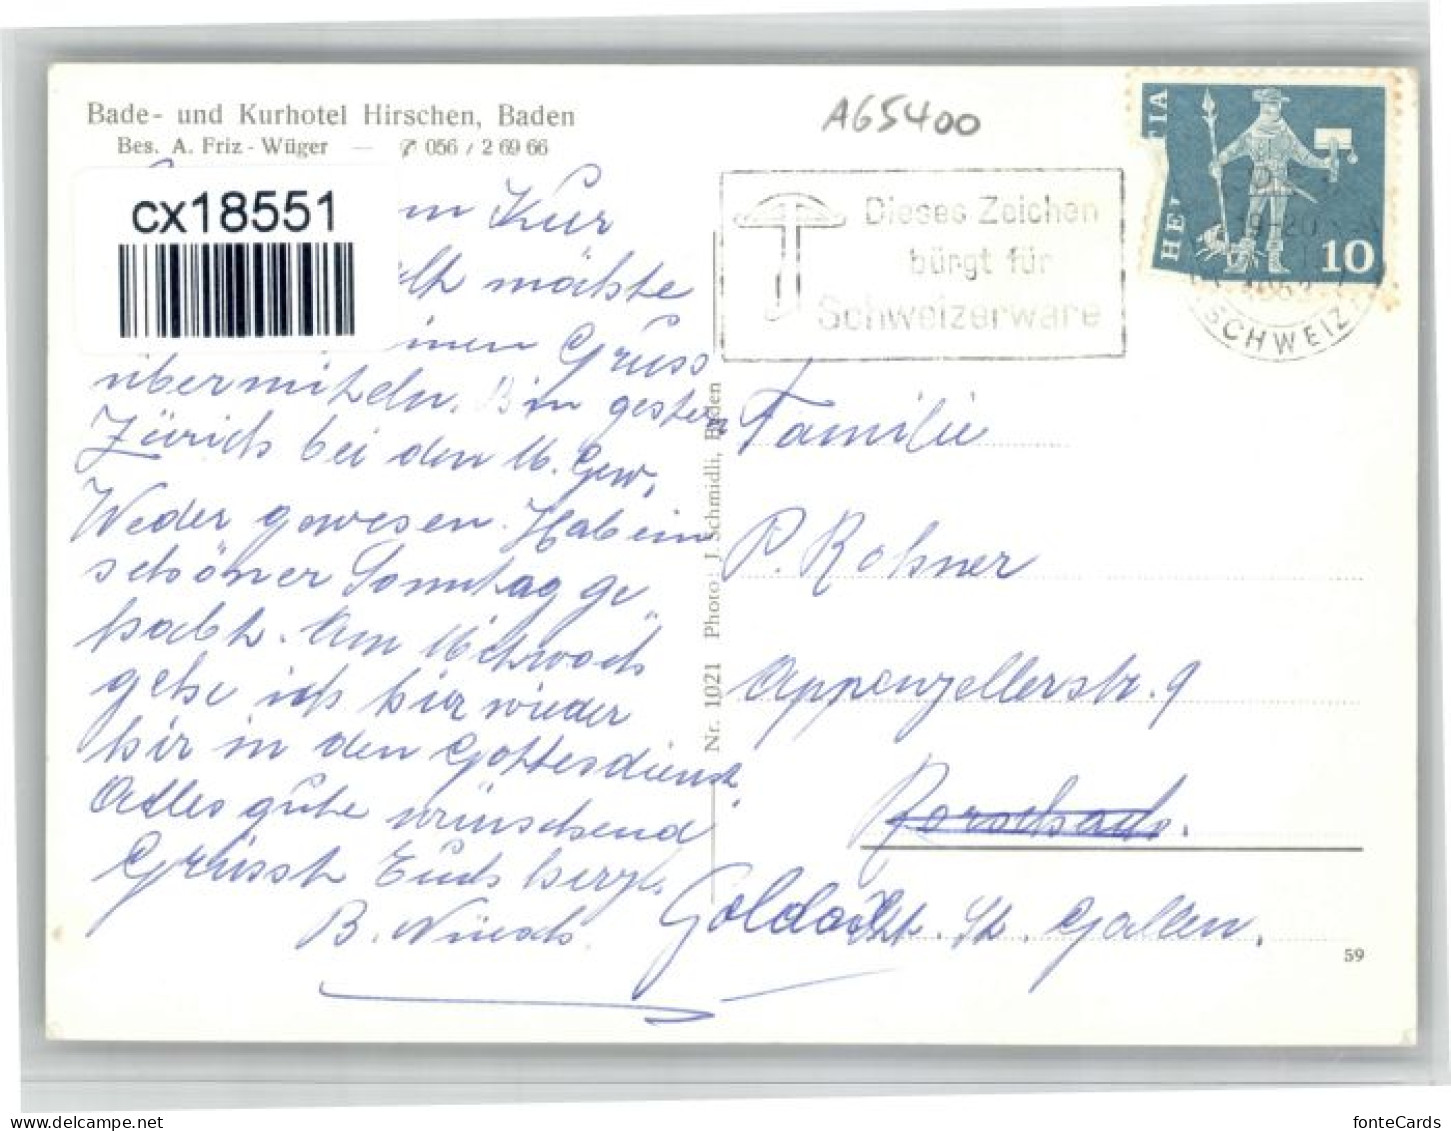 Bade- und Kurhotel Hirschen, Baden
Bes. A. Friz - Wüger — 056 / 2 69 66
cx18551
A65400
HELVETIA
10
Dieses Zeichen
bürgt für
Schweizerware
SCHWEIZ
Kur
möchte
Gruss
übermitteln. Bin gestern
Zürich bei den
Weder gewesen. Hab ein
schöner Sonntag ge-
habt. Am Mittwoch
gehe ich hier wieder
hir in den Gottesdienst.
Alles gute wünschend
Grüsst Euch herzl.
B. Nüesch.
Nr. 1021 Photo: J. Schmidli, Baden
Familie
P. Rohner
Appenzellerstr. 9
Rorschach.
Goldach. St. Gallen.
59
www.delcampe.net
fonteCards